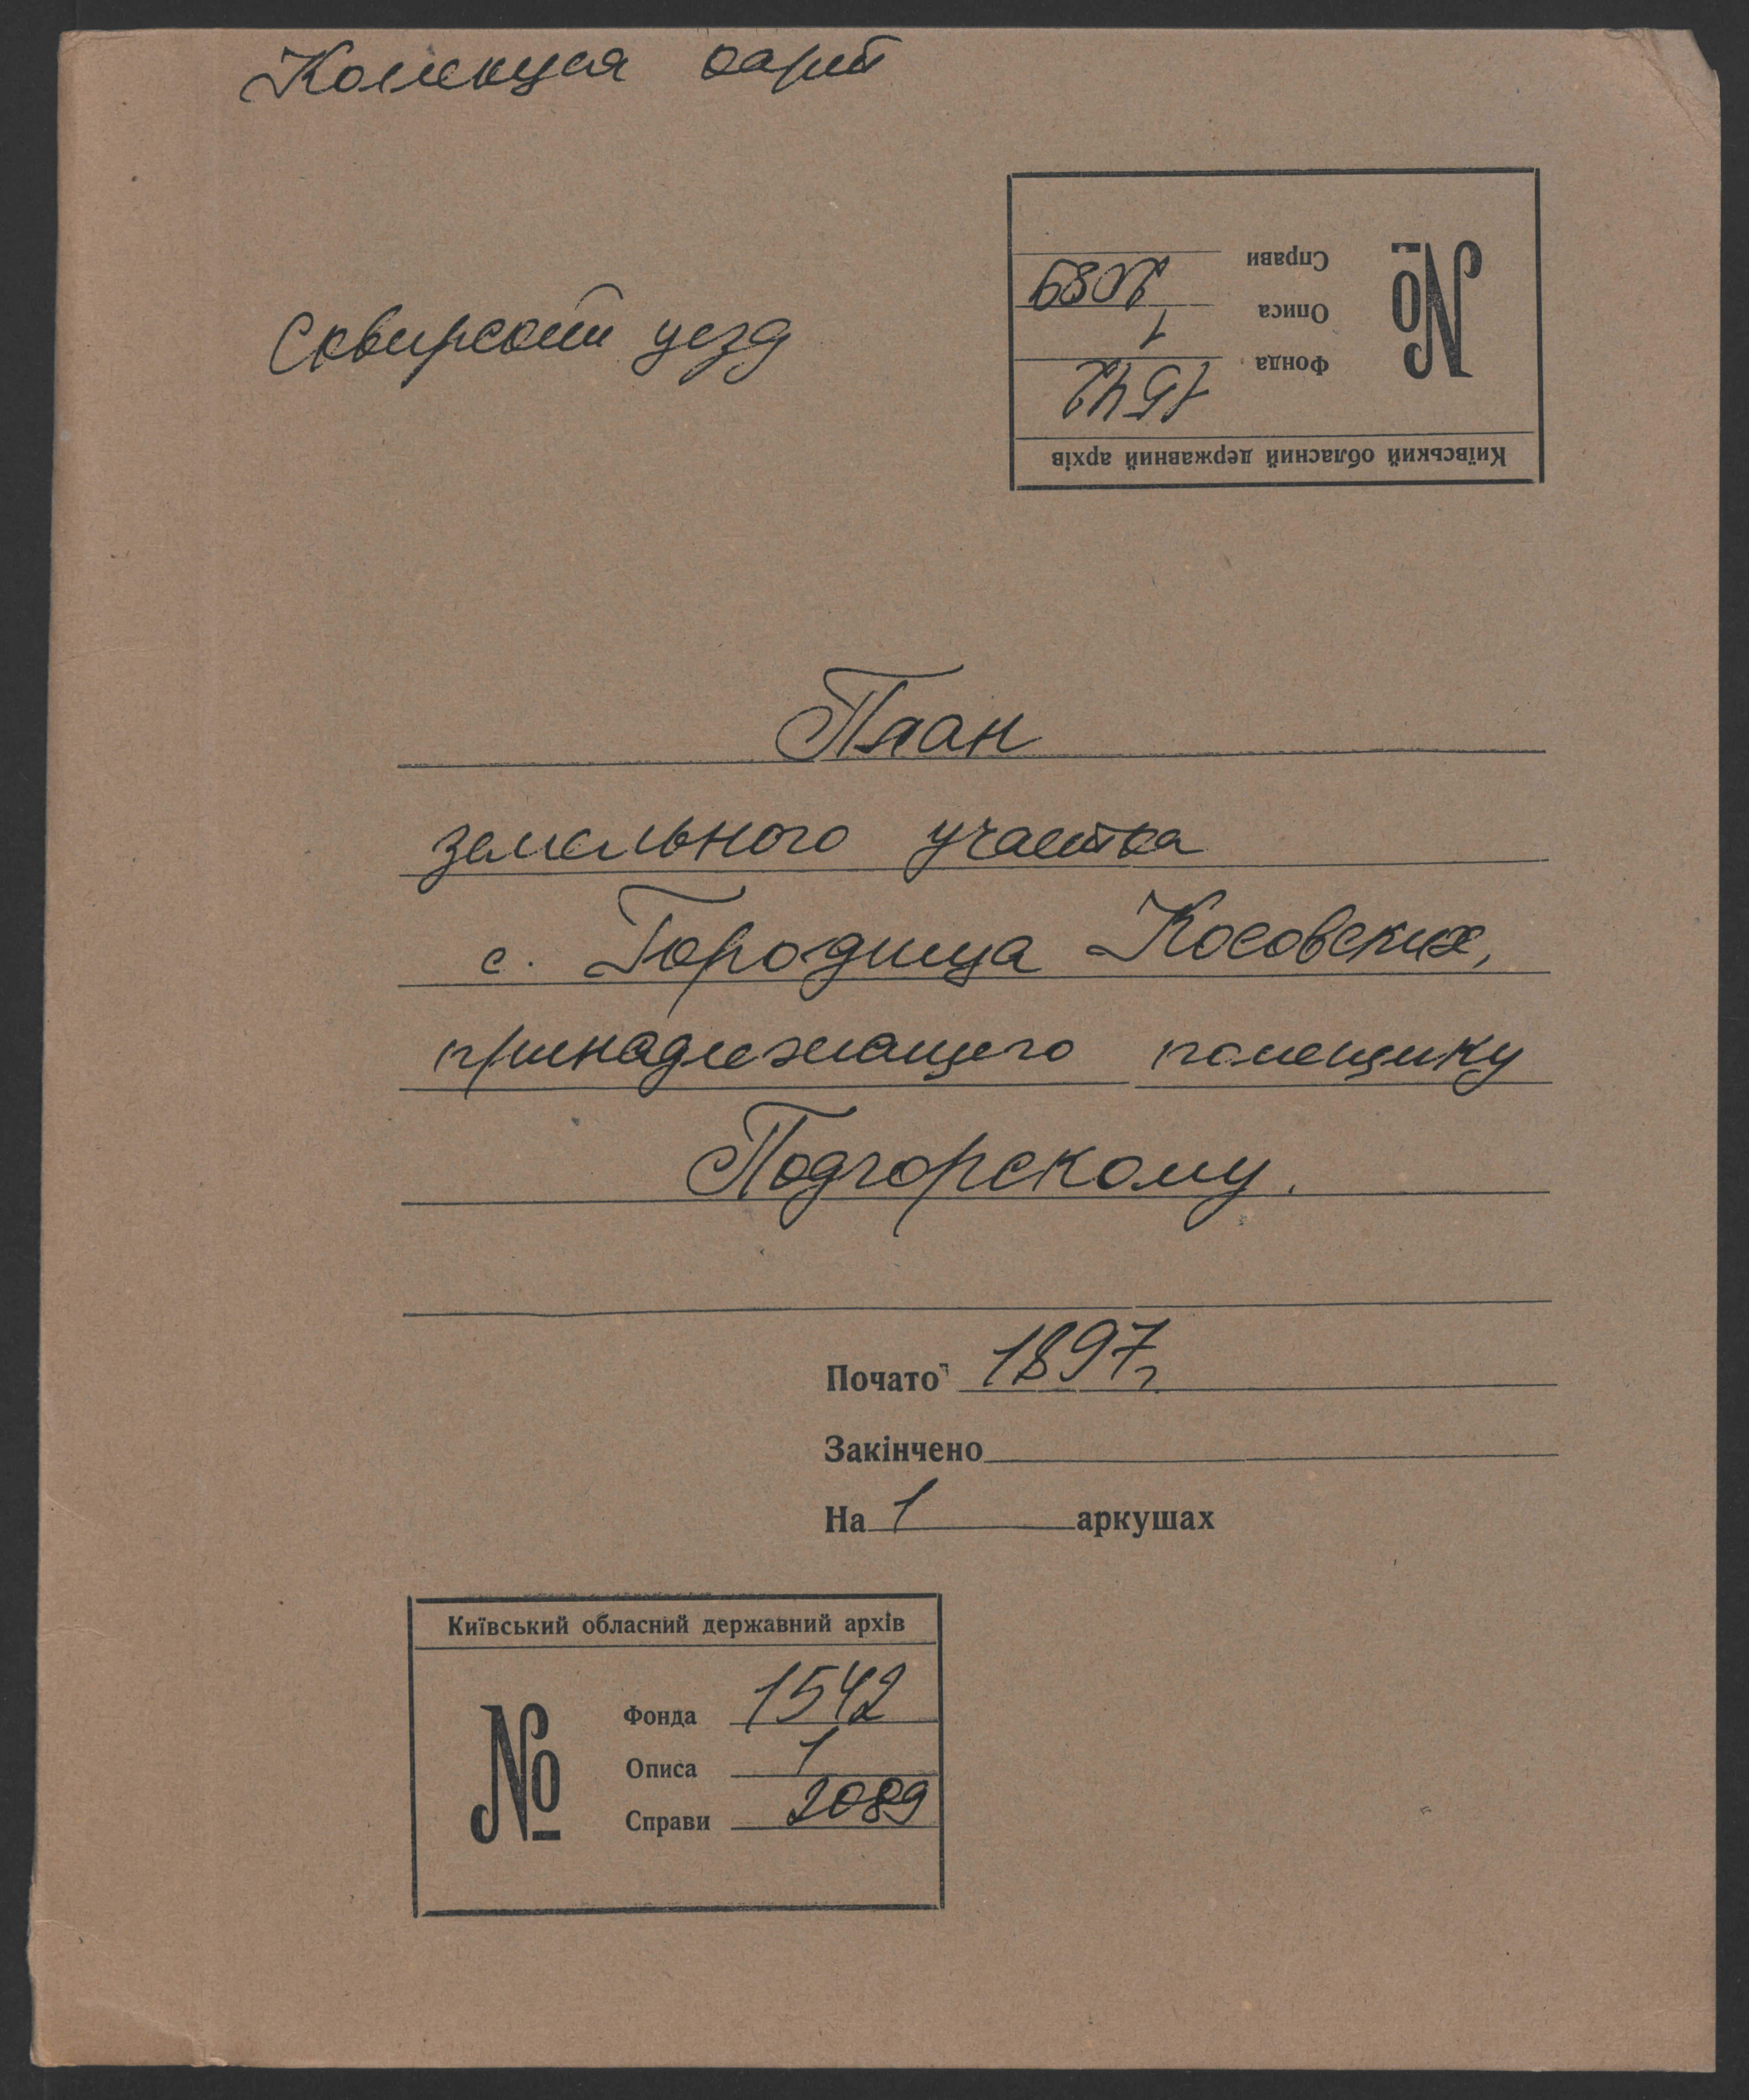 Колекция карт
Київський обласний державний архів
Фонда 1542
Описа 1
Справи 2089
№
Сквирский уезд
План
земельного участка
с. Городища Косовских,
принадлежащего помещику
Подгорскому.
Почато 1897 г.
Закінчено
На 1 аркушах
Київський обласний державний архів
№
Фонда 1542
Описа 1
Справи 2089